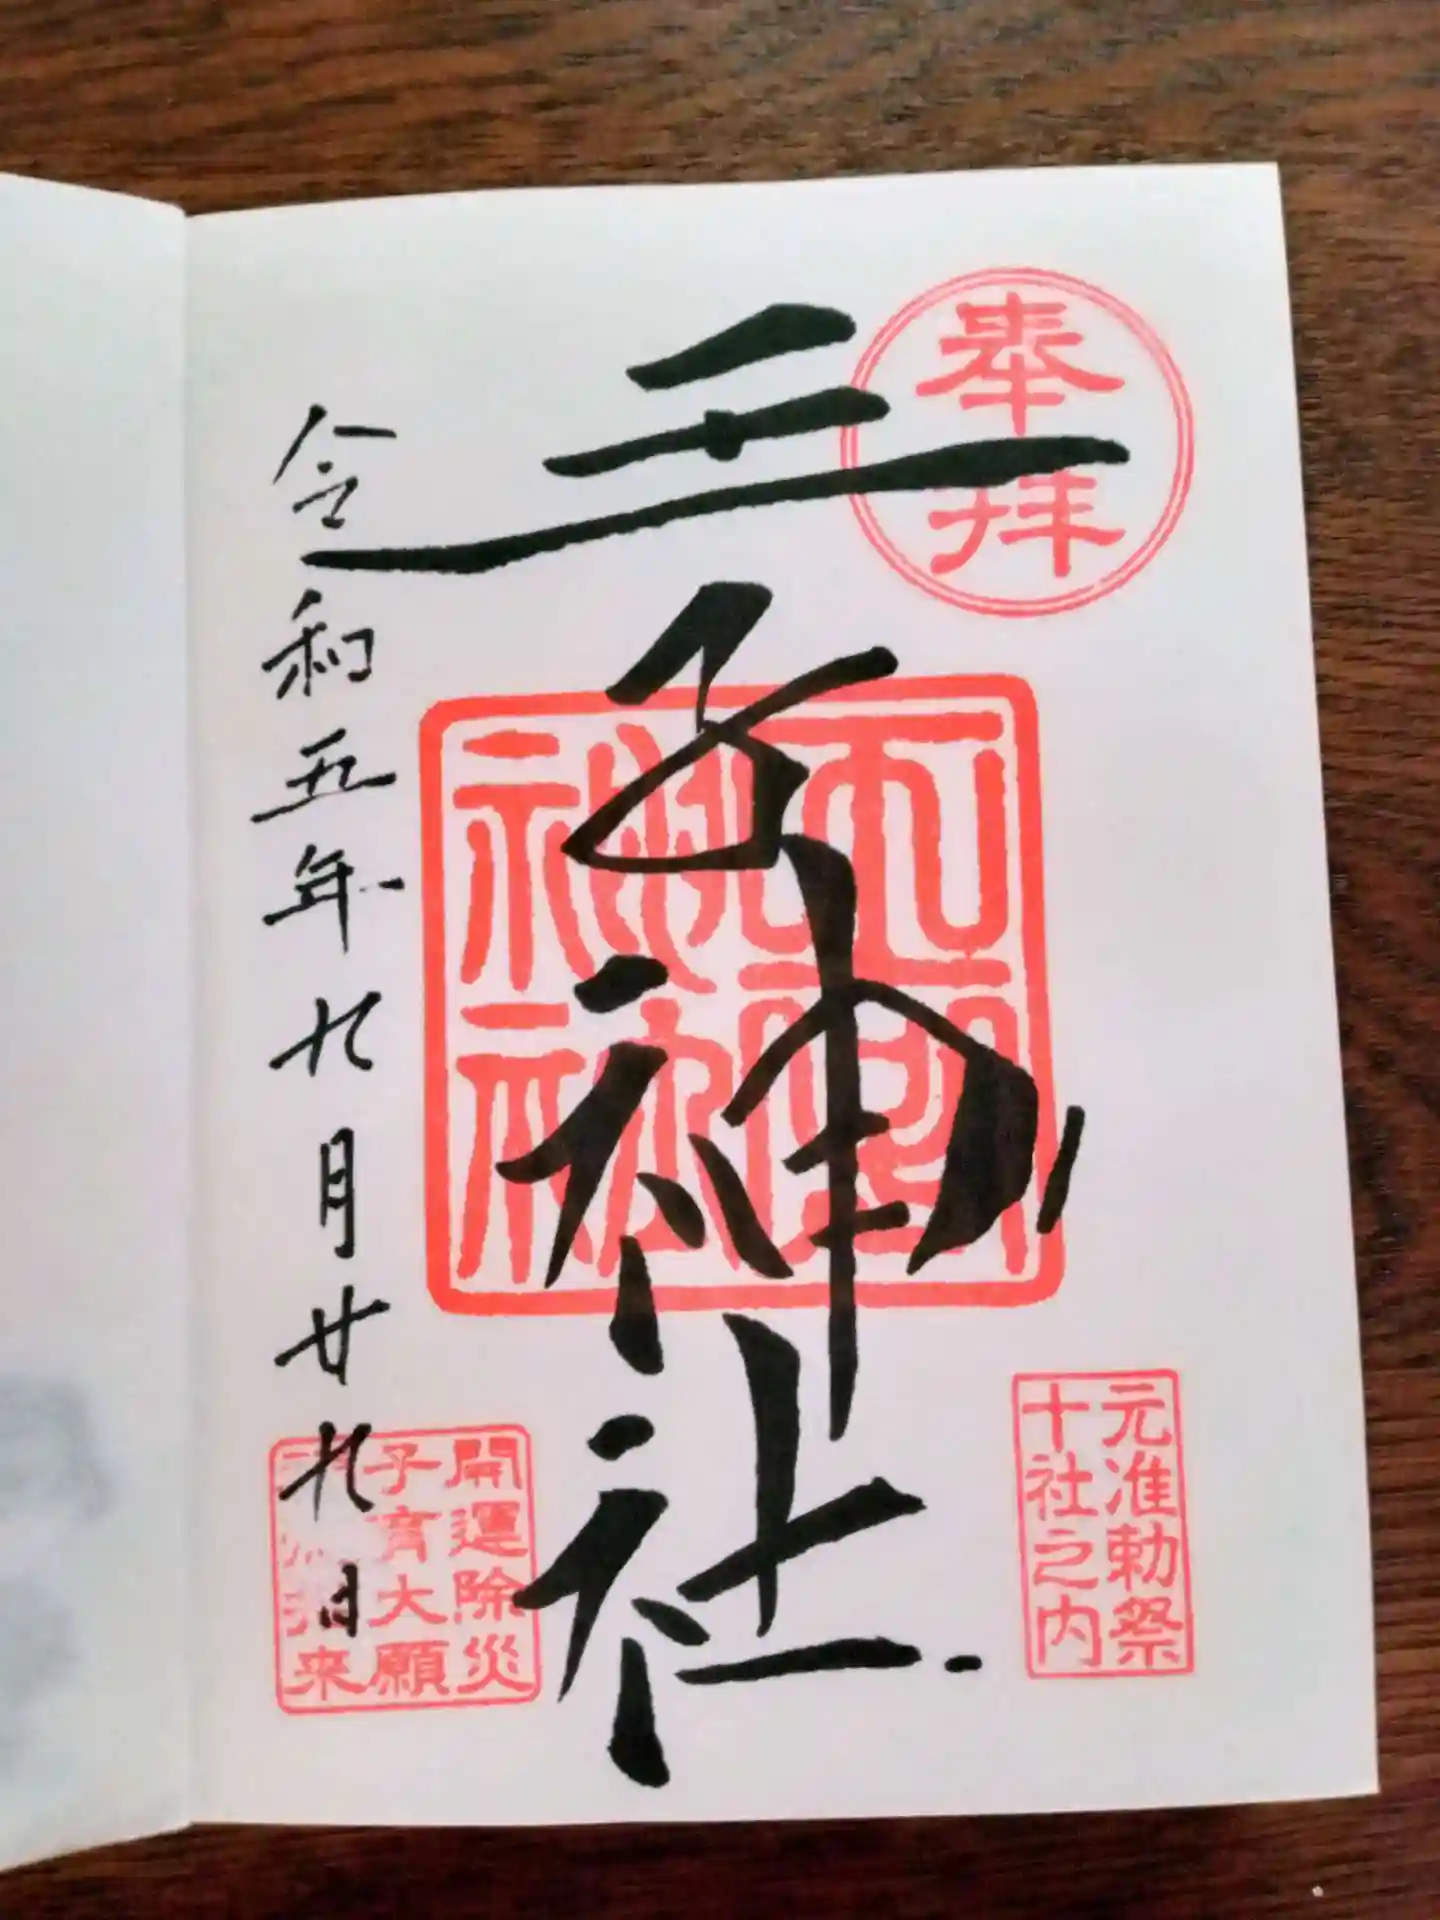 奉拝
王子神社
元准勅祭
十社之内
令和五年九月廿九日
開運除災
子育大願
来